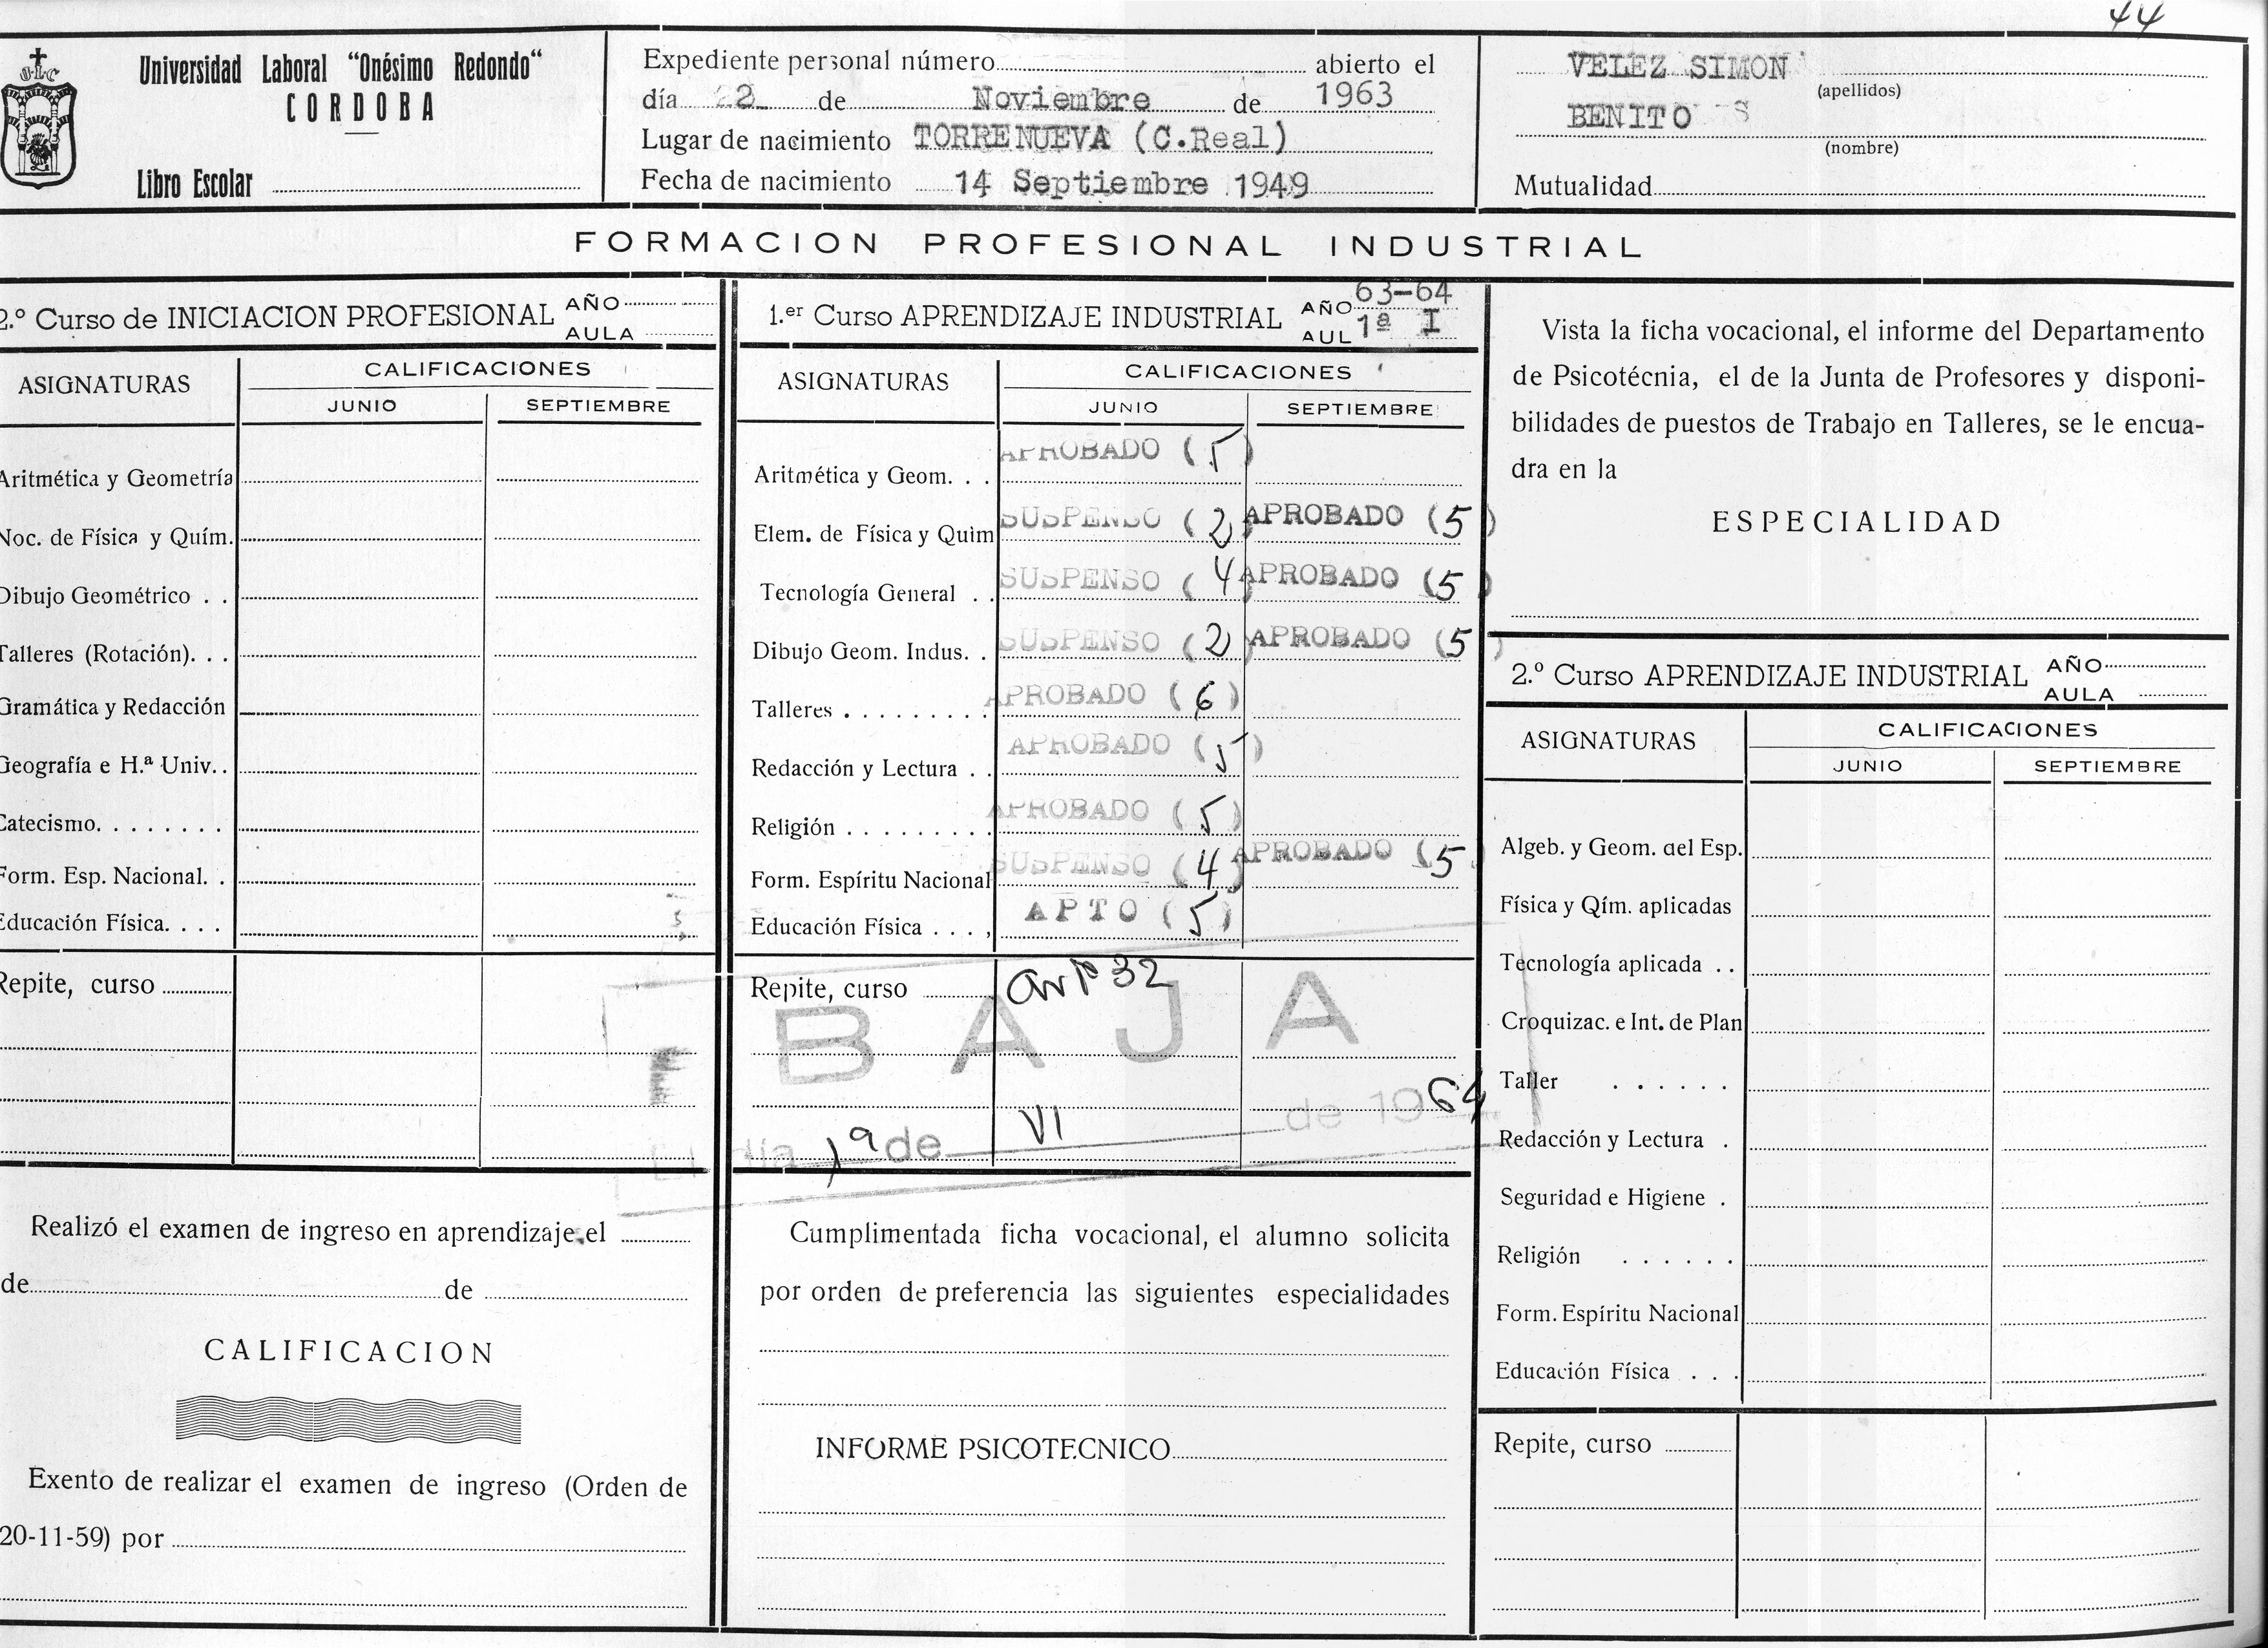 44
Universidad Laboral "Onésimo Redondo"
CORDOBA
Libro Escolar
Expediente personal número abierto el
día 22 de Noviembre de 1963
Lugar de nacimiento TORRENUEVA (C.Real)
Fecha de nacimiento 14 Septiembre 1949
VELEZ SIMON
(apellidos)
BENITO
(nombre)
Mutualidad
FORMACION PROFESIONAL INDUSTRIAL
2.º Curso de INICIACION PROFESIONAL AÑO
AULA
ASIGNATURAS CALIFICACIONES
JUNIO SEPTIEMBRE
Aritmética y Geometría
Noc. de Física y Quím.
Dibujo Geométrico . .
Talleres (Rotación). . .
Gramática y Redacción
Geografía e H.ª Univ. .
Catecismo. . . . . . . .
Form. Esp. Nacional. .
Educación Física. . . .
Repite, curso
Realizó el examen de ingreso en aprendizaje el
de de
CALIFICACION
Exento de realizar el examen de ingreso (Orden de
20-11-59) por
1.er Curso APRENDIZAJE INDUSTRIAL AÑO 63-64
AUL 1ª I
ASIGNATURAS CALIFICACIONES
JUNIO SEPTIEMBRE
Aritmética y Geom. . . APROBADO (5)
Elem. de Física y Quim SUSPENSO (2) APROBADO (5)
Tecnología General . . SUSPENSO (4) APROBADO (5)
Dibujo Geom. Indus. . SUSPENSO (2) APROBADO (5)
Talleres . . . . . . . . . APROBADO (6)
Redacción y Lectura . . APROBADO (5)
Religión . . . . . . . . . APROBADO (5)
Form. Espíritu Nacional SUSPENSO (4) APROBADO (5
Educación Física . . . , APTO (5)
Repite, curso artº 32
BAJA
El día 1ª de VI de 1964
Cumplimentada ficha vocacional, el alumno solicita
por orden de preferencia las siguientes especialidades
INFORME PSICOTECNICO
Vista la ficha vocacional, el informe del Departamento
de Psicotécnia, el de la Junta de Profesores y disponi-
bilidades de puestos de Trabajo en Talleres, se le encua-
dra en la
ESPECIALIDAD
2.º Curso APRENDIZAJE INDUSTRIAL AÑO
AULA
ASIGNATURAS CALIFICACIONES
JUNIO SEPTIEMBRE
Algeb. y Geom. del Esp.
Física y Qím. aplicadas
Tecnología aplicada . .
Croquizac. e Int. de Plan
Taller . . . . . .
Redacción y Lectura .
Seguridad e Higiene .
Religión . . . . . .
Form. Espíritu Nacional
Educación Física . . .
Repite, curso